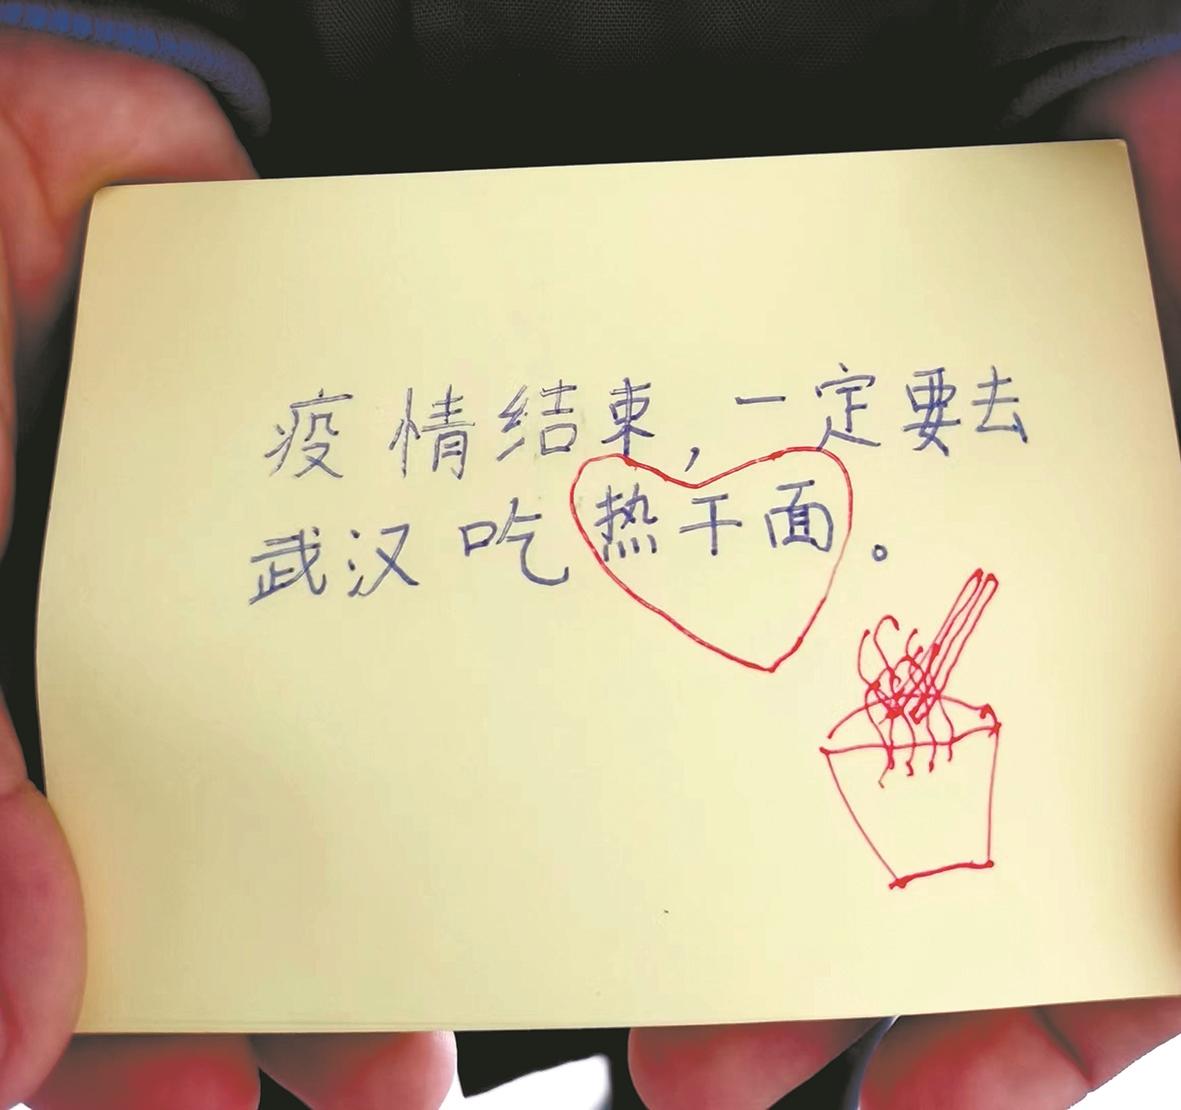 疫情结束,一定要去
武汉吃热干面。